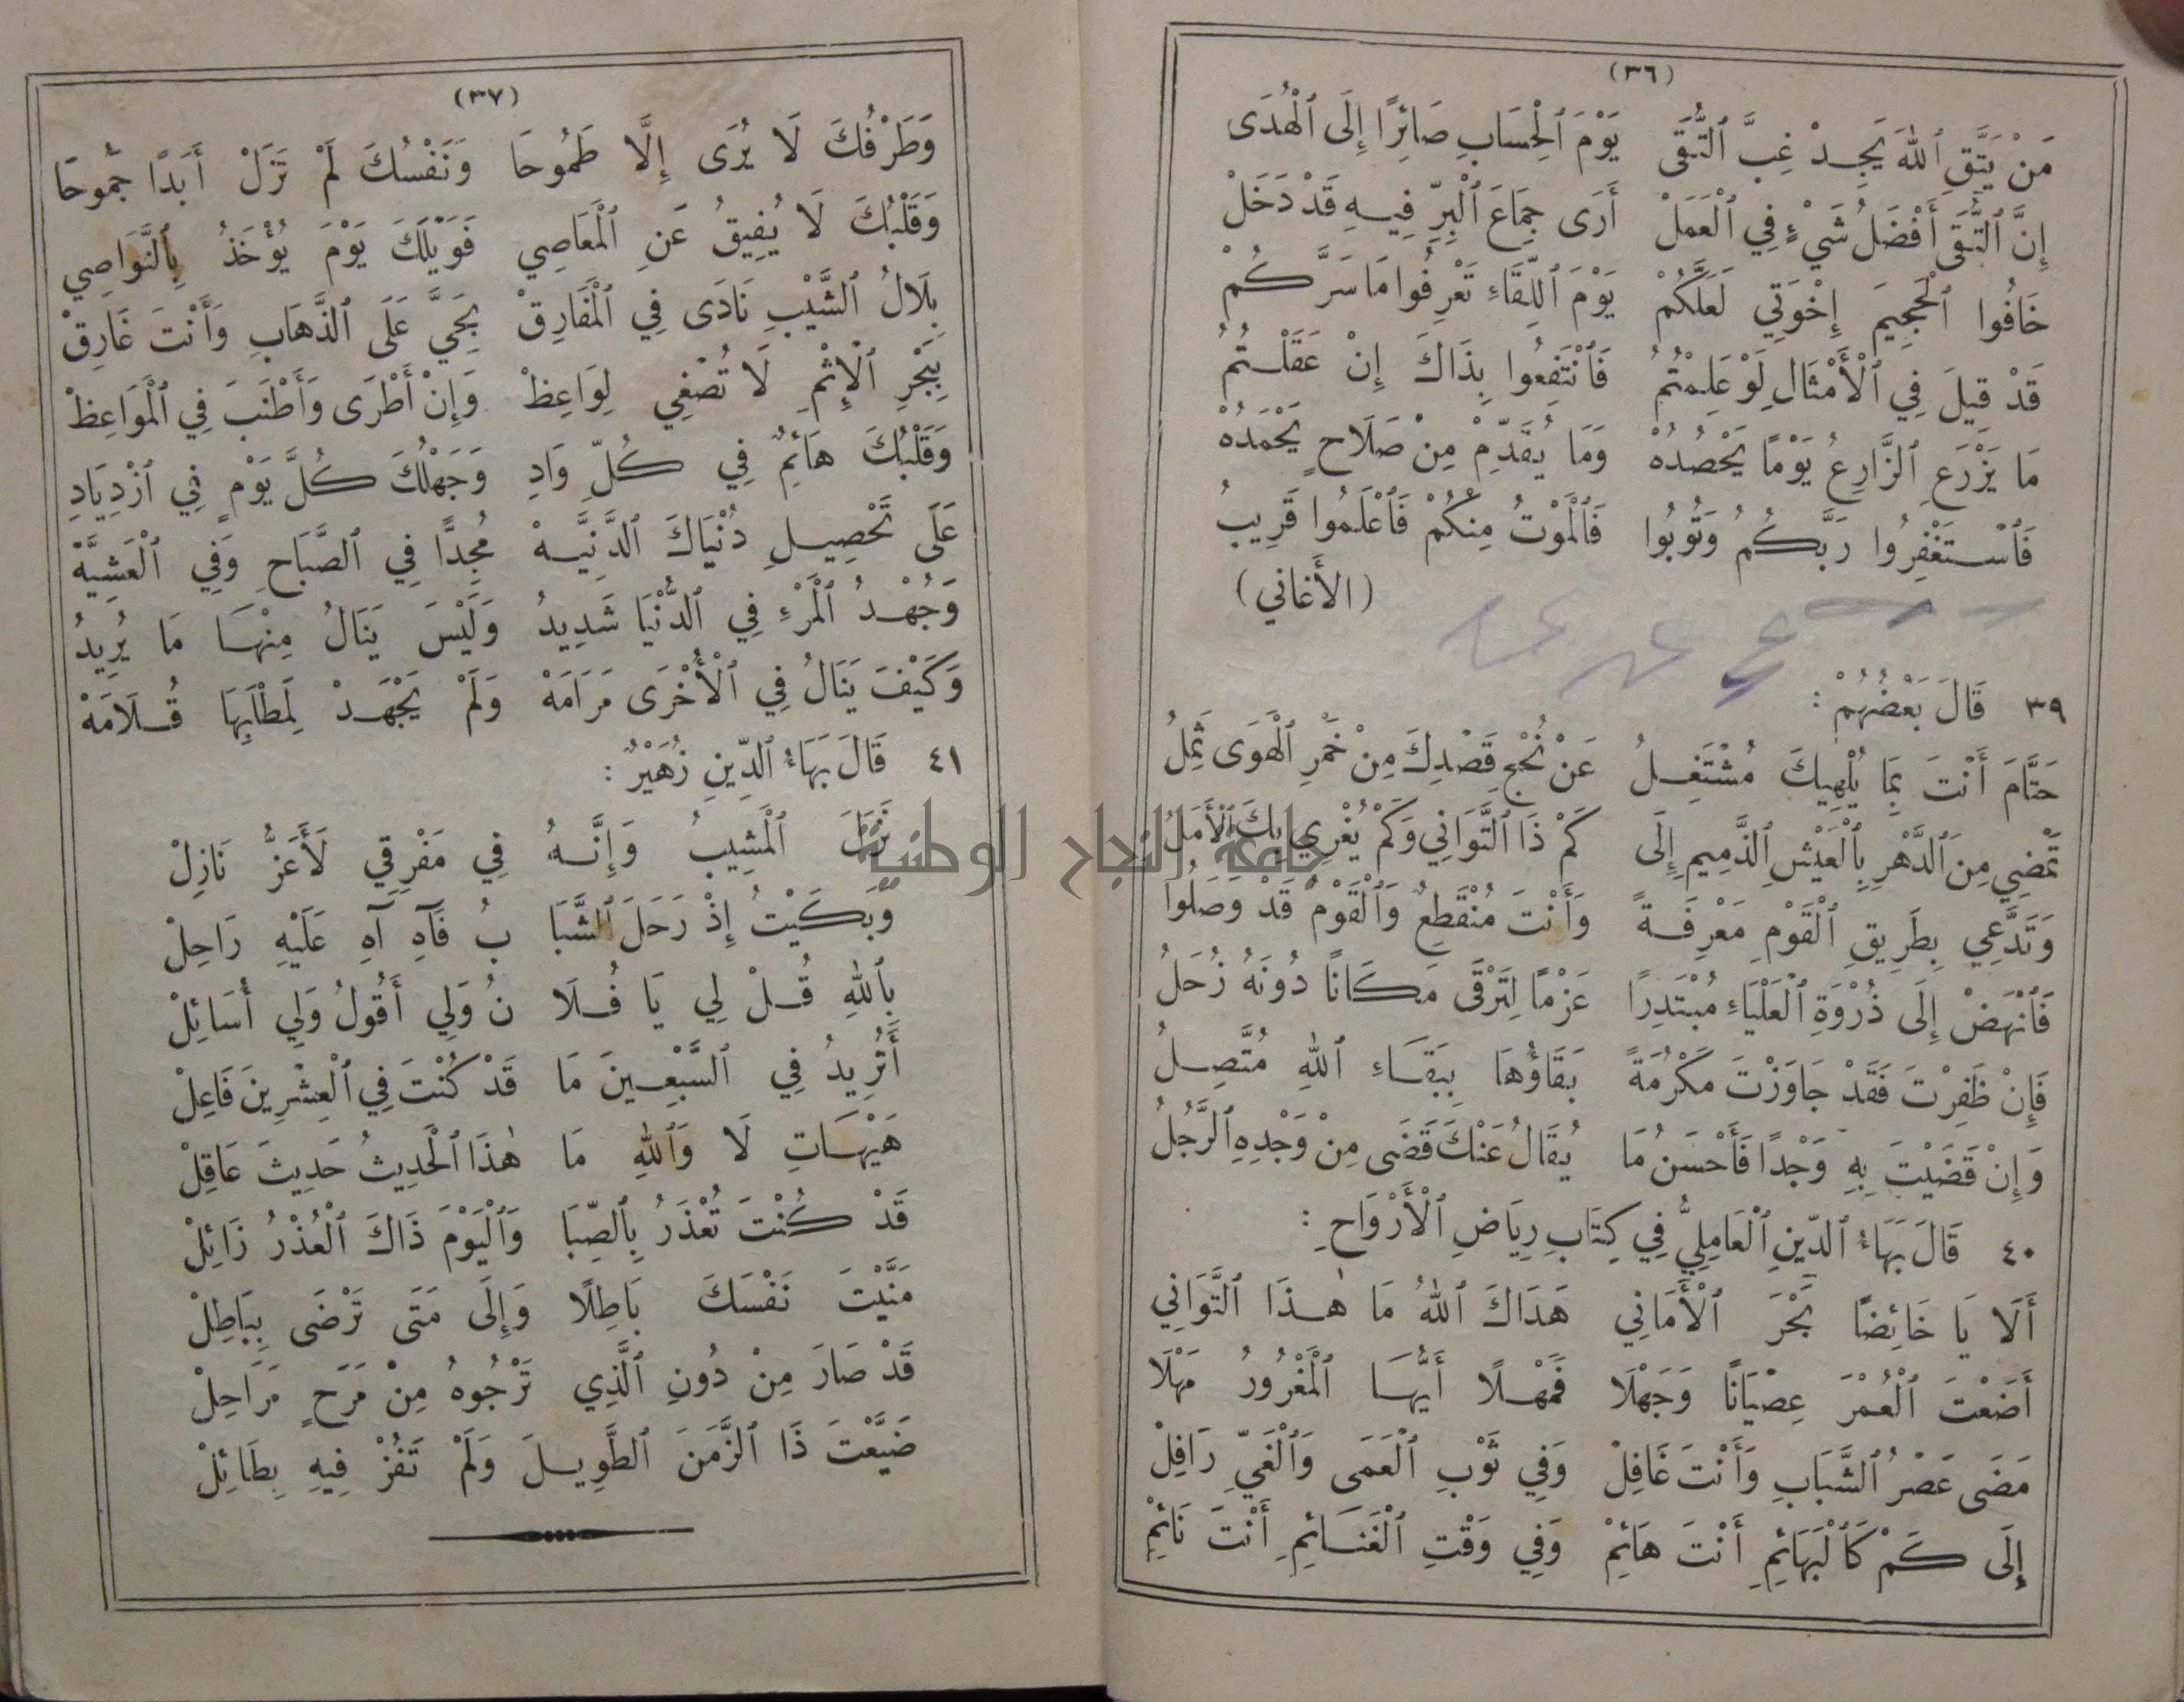 (٣٦)
مَنْ يَتَّقِ ٱللّٰهَ يَجِدْ غِبَّ ٱلتُّقَى يَوْمَ ٱلْحِسَابِ صَائِرًا إِلَى ٱلْهُدَى
إِنَّ ٱلتُّقَى أَفْضَلُ شَيْءٍ فِي ٱلْعَمَلْ أَرَى جِمَاعَ ٱلْبِرِّ فِيهِ قَدْ دَخَلْ
خَافُوا ٱلْجَحِيمَ إِخْوَتِي لَعَلَّكُمْ يَوْمَ ٱللِّقَاءِ تَعْرِفُوا مَا سَرَّكُمْ
قَدْ قِيلَ فِي ٱلْأَمْثَالِ لَوْ عَلِمْتُمُ فَٱنْتَفِعُوا بِذَاكَ إِنْ عَقَلْتُمُ
مَا يَزْرَعِ ٱلزَّارِعُ يَوْمًا يَحْصُدُهْ وَمَا يُقَدِّمْ مِنْ صَلَاحٍ يَحْمَدُهْ
فَٱسْتَغْفِرُوا رَبَّكُمُ وَتُوبُوا فَٱلْمَوْتُ مِنْكُمْ فَٱعْلَمُوا قَرِيبُ
(الأَغاني)
٣٩ قَالَ بَعْضُهُمْ :
حَتَّامَ أَنْتَ بِمَا يُلْهِيكَ مُشْتَغِلُ عَنْ نُجْحِ قَصْدِكَ مِنْ خَمْرِ ٱلْهَوَى ثَمِلُ
تَمْضِي مِنَ ٱلدَّهْرِ بِٱلْعَيْشِ ٱلذَّمِيمِ إِلَى كَمْ ذَا ٱلتَّوَانِي وَكَمْ يُغْرِي بِكَ ٱلْأَمَلُ
وَتَدَّعِي بِطَرِيقِ ٱلْقَوْمِ مَعْرِفَةً وَأَنْتَ مُنْقَطِعٌ وَٱلْقَوْمُ قَدْ وَصَلُوا
فَٱنْهَضْ إِلَى ذُرْوَةِ ٱلْعَلْيَاءِ مُبْتَدِرًا عَزْمًا لِتَرْقَى مَكَانًا دُونَهُ زُحَلُ
فَإِنْ ظَفِرْتَ فَقَدْ جَاوَزْتَ مَكْرُمَةً بَقَاؤُهَا بِبَقَاءِ ٱللّٰهِ مُتَّصِلُ
وَإِنْ قَضَيْتَ بِهِ وَجْدًا فَأَحْسَنُ مَا يُقَالُ عَنْكَ قَضَى مِنْ وَجْدِهِ ٱلرَّجُلُ
٤٠ قَالَ بَهَاءُ ٱلدِّينِ ٱلْعَامِلِيُّ فِي كِتَابِ رِيَاضِ ٱلْأَرْوَاحِ :
أَلَا يَا خَائِضًا بَحْرَ ٱلْأَمَانِي هَدَاكَ ٱللّٰهُ مَا هٰذَا ٱلتَّوَانِي
أَضَعْتَ ٱلْعُمْرَ عِصْيَانًا وَجَهْلَا فَمَهْلًا أَيُّهَا ٱلْمَغْرُورُ مَهْلَا
مَضَى عَصْرُ ٱلشَّبَابِ وَأَنْتَ غَافِلْ وَفِي ثَوْبِ ٱلْعَمَى وَٱلْغَيِّ رَافِلْ
إِلَى كَمْ كَٱلْبَهَائِمِ أَنْتَ هَائِمْ وَفِي وَقْتِ ٱلْغَنَائِمِ أَنْتَ نَائِمْ
(٣٧)
وَطَرْفُكَ لَا يُرَى إِلَّا طَمُوحَا وَنَفْسُكَ لَمْ تَزَلْ أَبَدًا جَمُوحَا
وَقَلْبُكَ لَا يُفِيقُ عَنِ ٱلْمَعَاصِي فَوَيْلَكَ يَوْمَ يُؤْخَذُ بِٱلنَّوَاصِي
بِلَالُ ٱلشَّيْبِ نَادَى فِي ٱلْمَفَارِقْ بِحَيَّ عَلَى ٱلذَّهَابِ وَأَنْتَ غَارِقْ
بِبَحْرِ ٱلْإِثْمِ لَا تُصْغِي لِوَاعِظْ وَإِنْ أَطْرَى وَأَطْنَبَ فِي ٱلْمَوَاعِظْ
وَقَلْبُكَ هَائِمٌ فِي كُلِّ وَادِ وَجَهْلُكَ كُلَّ يَوْمٍ فِي ٱزْدِيَادِ
عَلَى تَحْصِيلِ دُنْيَاكَ ٱلدَّنِيَّهْ مُجِدًّا فِي ٱلصَّبَاحِ وَفِي ٱلْعَشِيَّهْ
وَجُهْدُ ٱلْمَرْءِ فِي ٱلدُّنْيَا شَدِيدُ وَلَيْسَ يَنَالُ مِنْهَا مَا يُرِيدُ
وَكَيْفَ يَنَالُ فِي ٱلْأُخْرَى مَرَامَهْ وَلَمْ يَجْهَدْ لِمَطْلَبِهَا قُلَامَهْ
٤١ قَالَ بَهَاءُ ٱلدِّينِ زُهَيْرٌ :
نَزَلَ ٱلْمَشِيبُ وَإِنَّهُ فِي مَفْرِقِي لَأَعَزُّ نَازِلْ
وَبَكَيْتُ إِذْ رَحَلَ ٱلشَّبَا بُ فَآهِ آهِ عَلَيْهِ رَاحِلْ
بِٱللّٰهِ قُلْ لِي يَا فُلَا نُ وَلِي أَقُولُ وَلِي أُسَائِلْ
أَتُرِيدُ فِي ٱلسَّبْعِينَ مَا قَدْ كُنْتَ فِي ٱلْعِشْرِينَ فَاعِلْ
هَيْهَاتِ لَا وَٱللّٰهِ مَا هٰذَا ٱلْحَدِيثُ حَدِيثَ عَاقِلْ
قَدْ كُنْتَ تُعْذَرُ بِٱلصِّبَا وَٱلْيَوْمَ ذَاكَ ٱلْعُذْرُ زَائِلْ
مَنَّيْتَ نَفْسَكَ بَاطِلًا وَإِلَى مَتَى تَرْضَى بِبَاطِلْ
قَدْ صَارَ مِنْ دُونِ ٱلَّذِي تَرْجُوهُ مِنْ مَرَحٍ مَرَاحِلْ
ضَيَّعْتَ ذَا ٱلزَّمَنَ ٱلطَّوِيلَ وَلَمْ تَفُزْ فِيهِ بِطَائِلْ
جامعة النجاح الوطنية